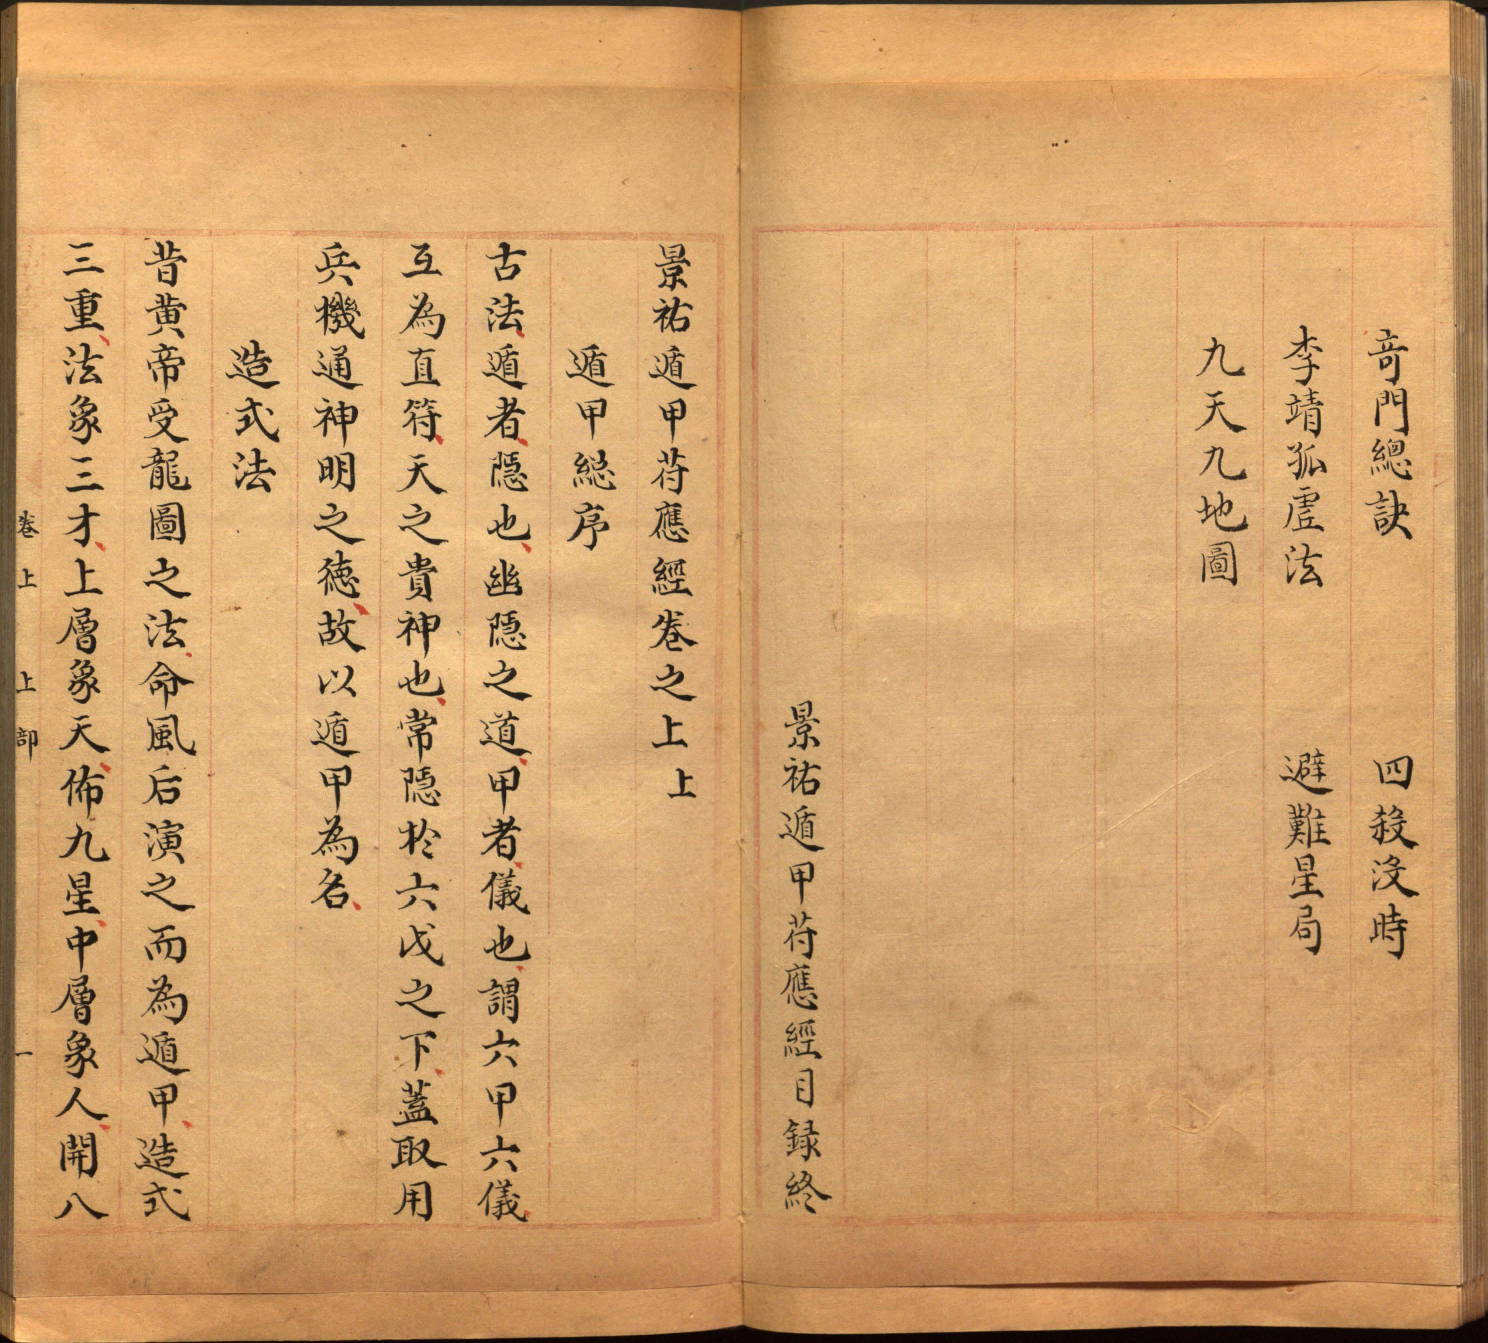 竒門總訣　四殺没時
李靖孤虗法　避難星局
九天九地圖
景祐遁甲苻應經目録終
景祐遁甲苻應經卷之上上
遁甲総序
古法遁者隱也幽隱之道甲者儀也謂六甲六儀
互為直符天之貴神也常隱於六戊之下蓋取用
兵機通神明之德故以遁甲為名
造式法
昔黄帝受龍圖之法命風后演之而為遁甲造式
三重法象三才上層象天佈九星中層象人開八
卷上　上部　一